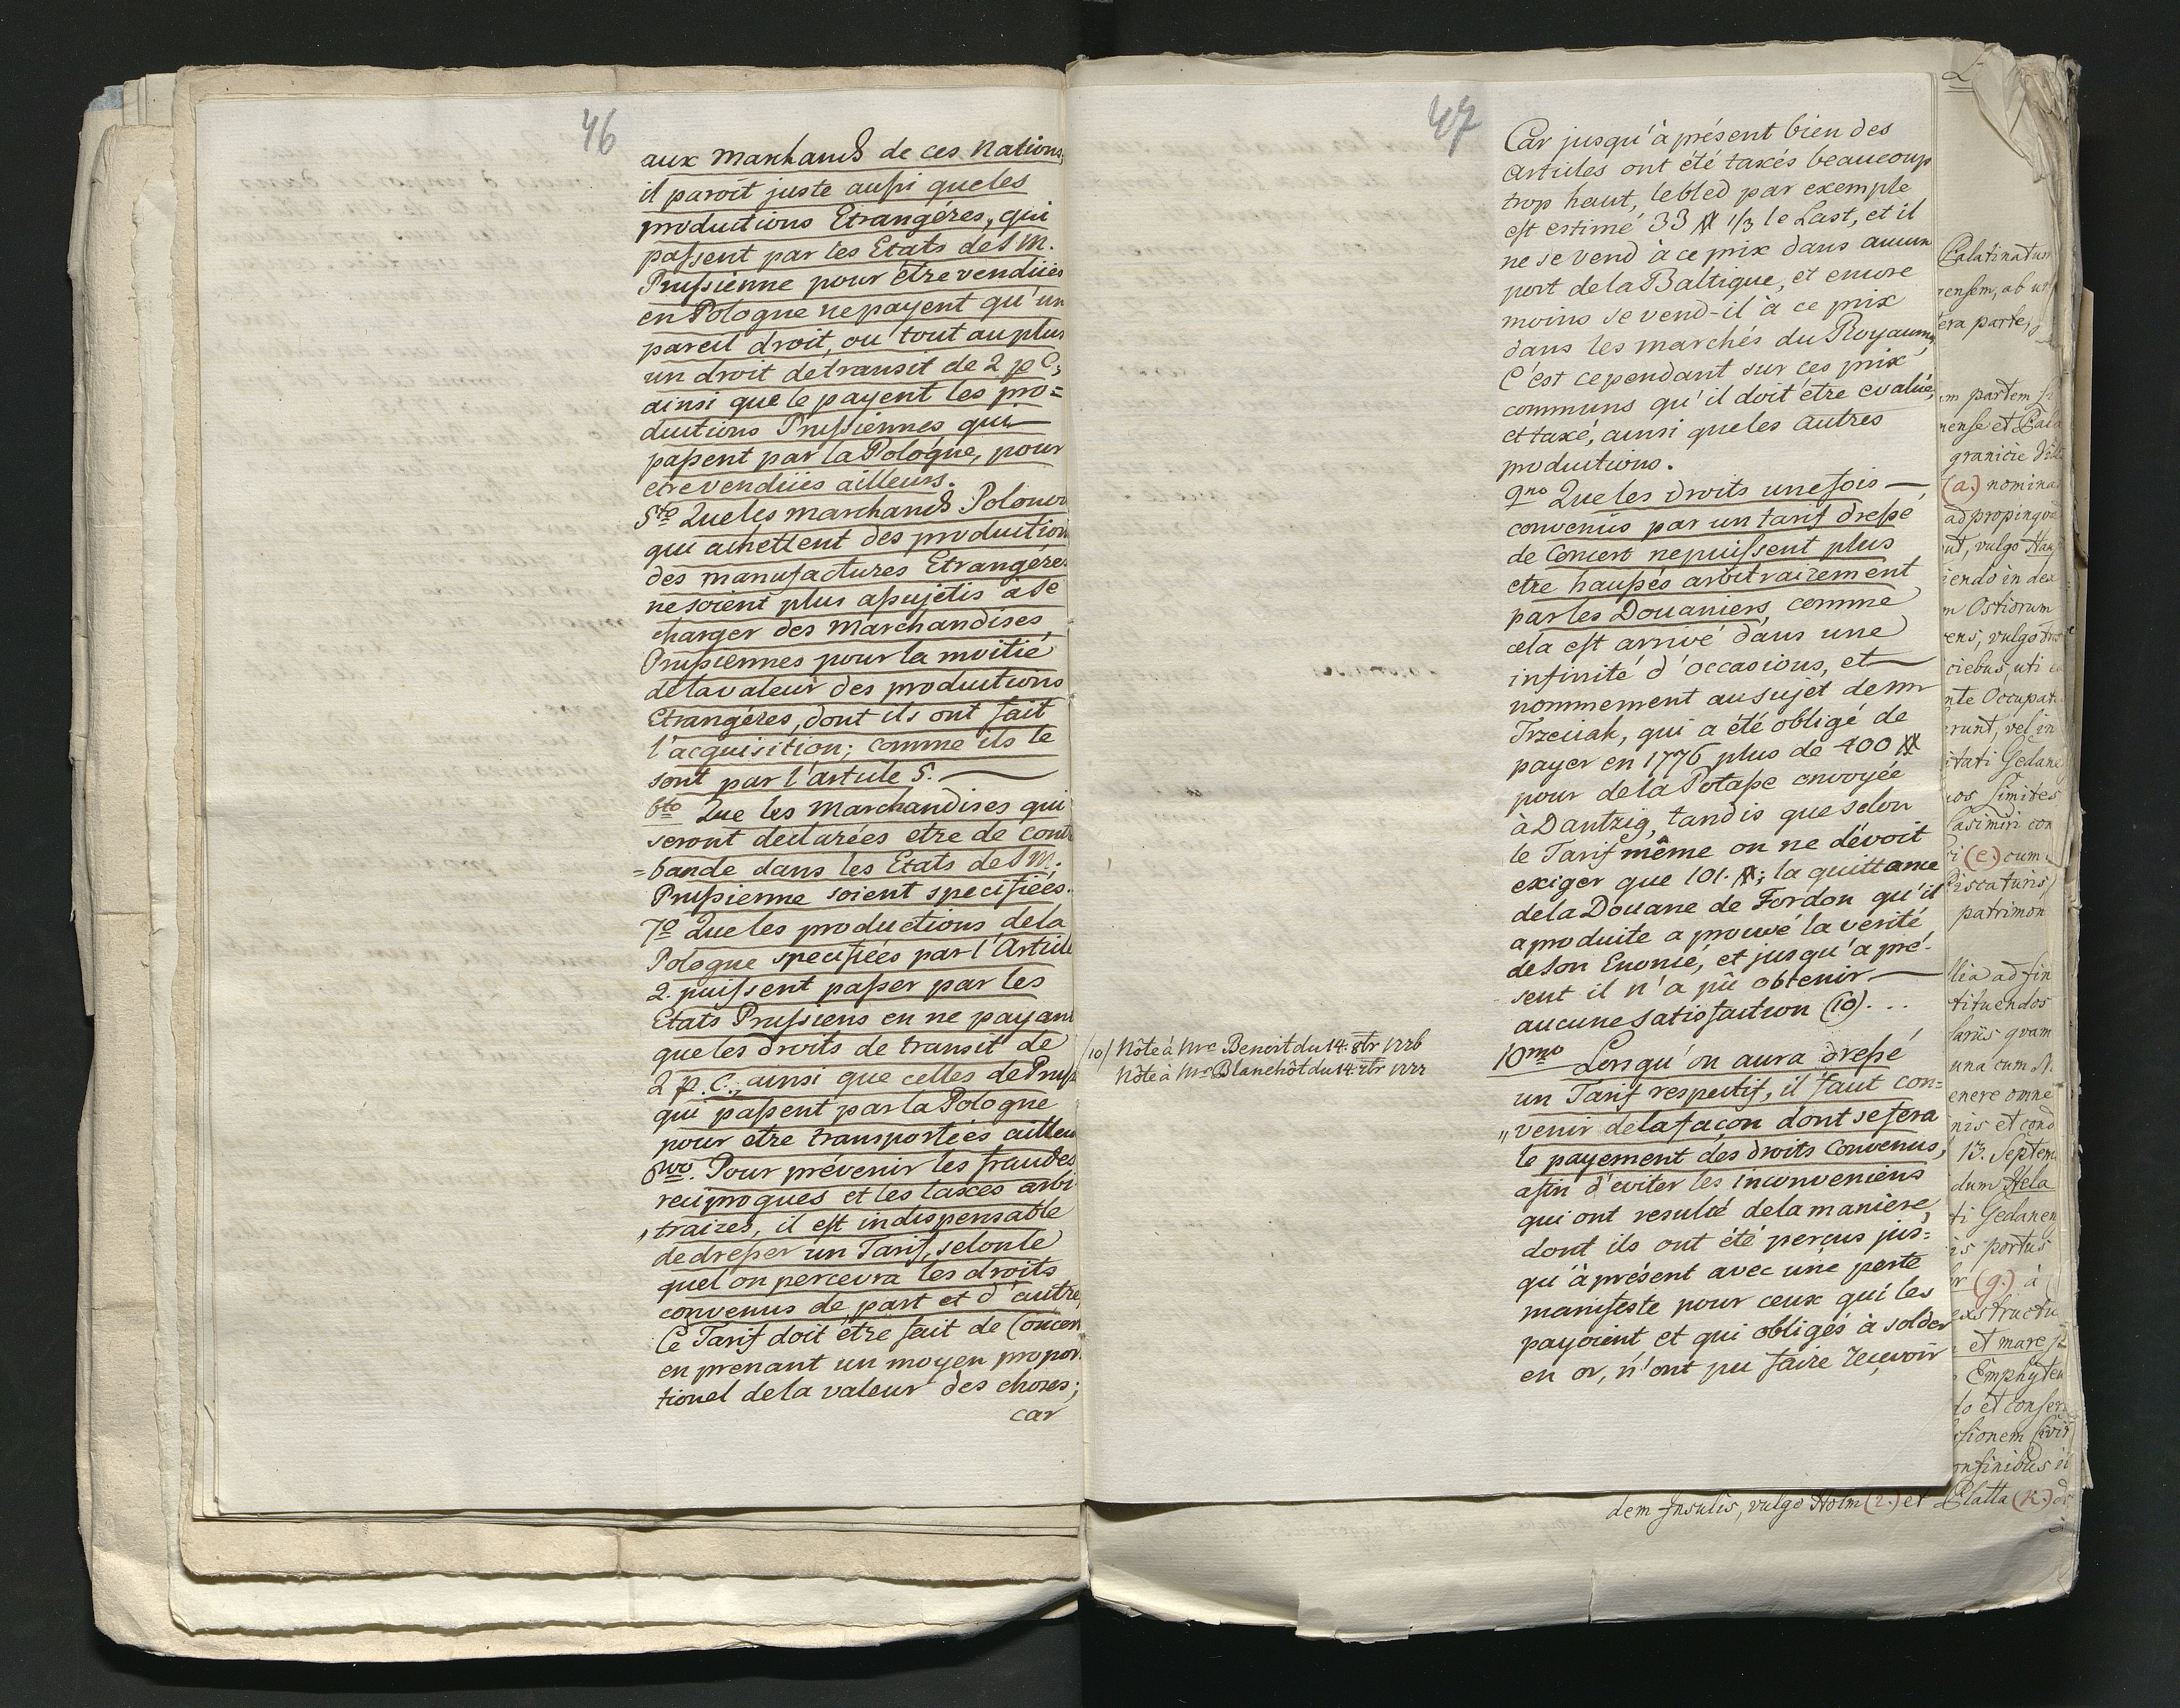 46
aux marchands de ces Nations,
il paroit juste aussi que les
productions Etrangéres, qui
passent par les Etats de S M.
Prussienne pour être vendües
en Pologne ne payent qu'un
pareil droit, ou tout au plus
un droit de transit de 2 p C,
ainsi que le payent les pro=
ductions Prussiennes qui
passent par la Pologne, pour
etre vendües ailleurs.
5to Que les marchands Polonois
qui achettent des production
des manufactures Etrangéres
ne soient plus assujétis à se
charger des Marchandises
Prussiennes pour la moitié
de la valeur des productions
Etrangéres, dont ils ont fait
l'acquisition; comme ils le
sont par l'article 5.
6to Que les Marchandises qui
seront declarées etre de contre
=bande dans les Etats de S M.
Prussienne soient specifiées.
7o Que les productions de la
Pologne specifiées par l'Article
2. puissent passer par les
Etats Prussiens en ne payant
que les droits de transit de
2 p. C., ainsi que celles de Prusse
qui passent par la Pologne
pour etre transportées ailleu
8vo. Pour prévenir les fraudes
reciproques et les taxes arbi
traires, il est indispensable
de dresser un Tarif, selon le
quel on percevra les droits
convenus de part et d'autre,
Ce Tarif doit être fait de Concert
en prenant un moyen propor
tionel de la valeur des choses;
car
47
Car jusqu'à présent bien des
articles ont été taxés beaucoup
trop haut, le bled par exemple
est estimé 33 # 1/3 le Last, et il
ne se vend à ce prix dans aucun
port de la Baltique, et encore
moins se vend-il à ce prix
dans les marchés du Royaume,
C'est cependant sur ces prix
communs qu'il doit être evalué,
et taxé, ainsi que les autres
productions.
9no Que les droits une fois
convenus par un tarif dressé
de Concert ne puissent plus
etre haussés arbitrairement
par les Douaniers, comme
cela est arrivé dans une
infinité d'occasions, et
nommement au sujet de mr
Trzeciak, qui a été obligé de
payer en 1776 plus de 400 #
pour de la Potasse envoyée
à Dantzig, tandis que selon
le Tarif même on ne dévoit
exiger que 101. #; la quittance
de la Douane de Fordon qu'il
a produite a prouvé la verité
de son Enoncé, et jusqu'à pré-
sent il n'a pû obtenir
aucune satisfaction (10)...
(10) Nôte à Mr Benoit du 14. 8tr 1776
Nôte à Mr Blanchôt du 14. 8tr 1777
10mo Lorsqu'on aura dressé
un Tarif respectif, il faut con=
"venir de la façon dont se fera
le payement des droits convenus,
afin d'eviter les inconveniens
qui ont resulté de la maniere,
dont ils ont été perçus jus=
qu'à présent avec une perte
manifeste pour ceux qui les
payoient, et qui obligés à solder
en or, n'ont pu faire reçevoir
Palatinatum
rensem, ab un
era parte,
m partem
nense et Pala
granicie
(a.) nomina
ad propinqva
ut, vulgo
iendo in dex
m Ostiorum
ens, vulgo
ciebus, uti
nte Occupat
erunt, vel in
itati Gedane
os Limites
Casimiri con
i (e.) cum
Piscaturis
patrimon
llia ad fin
tituendos
lariis qvam
una cum
enere omne
nis et cond
17. Septem
dum Hela
ti Gedanen
is portus
r (g.) à
exstructu
et mare
Emphyteu
do et conser
ssionem
onfinibus
dem Insulis, vulgo Holm (i.) et Platta (k.)